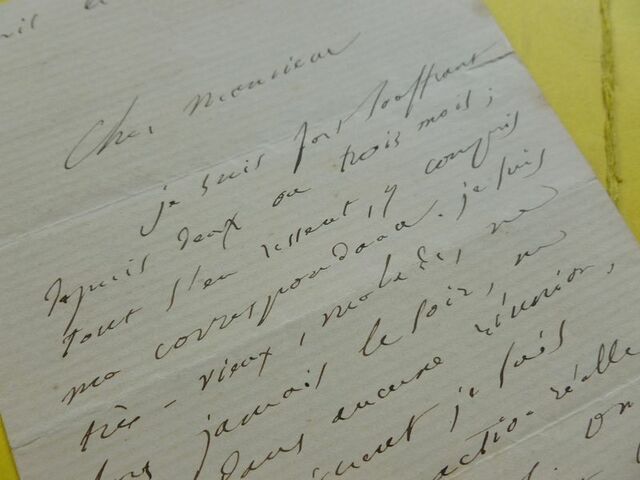 Cher Monsieur
je suis fort souffrant
depuis deux ou trois mois ;
tout s'en ressent, y compris
ma correspondance. je suis
très-vieux, malade, ne
sors jamais le soir, ne
dans aucune réunion,
je suis
réelle
on